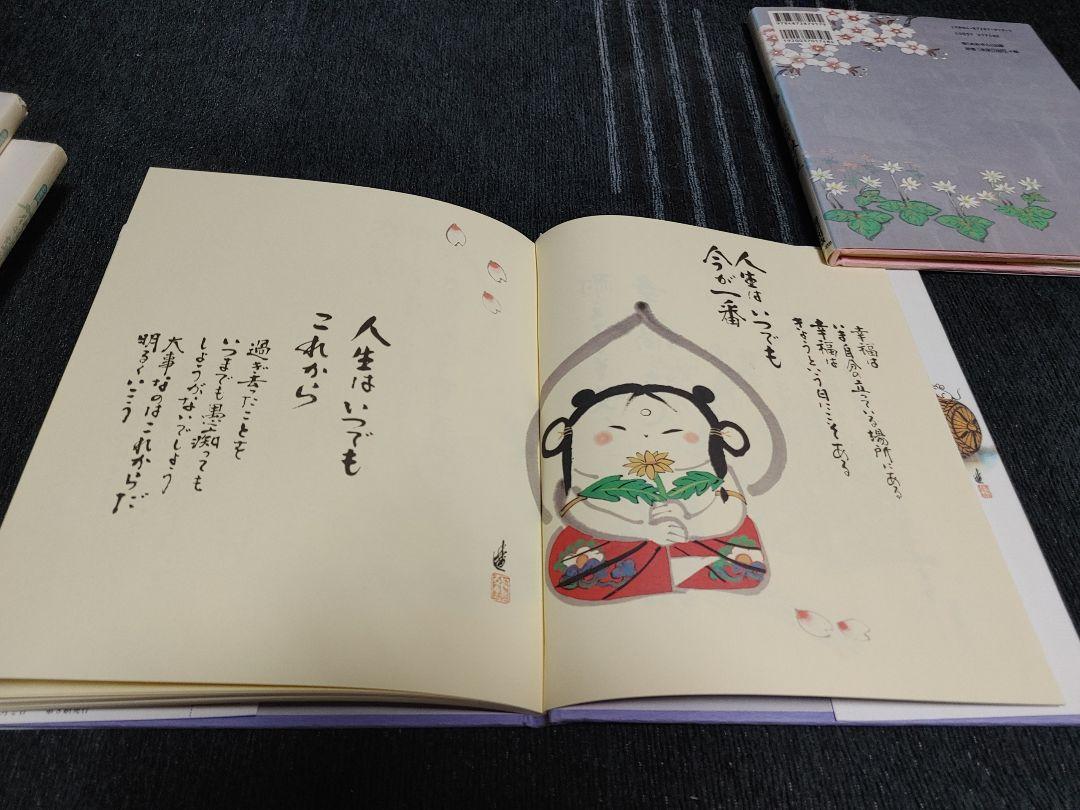 人生はいつでも
今が一番
幸福は
いま自分の立っている場所にある
幸福は
きょうという日にこそある
人生はいつでも
これから
過ぎ去ったことを
いつまでも愚痴っても
しょうがないでしょう
大事なのはこれからだ
明るくいこう